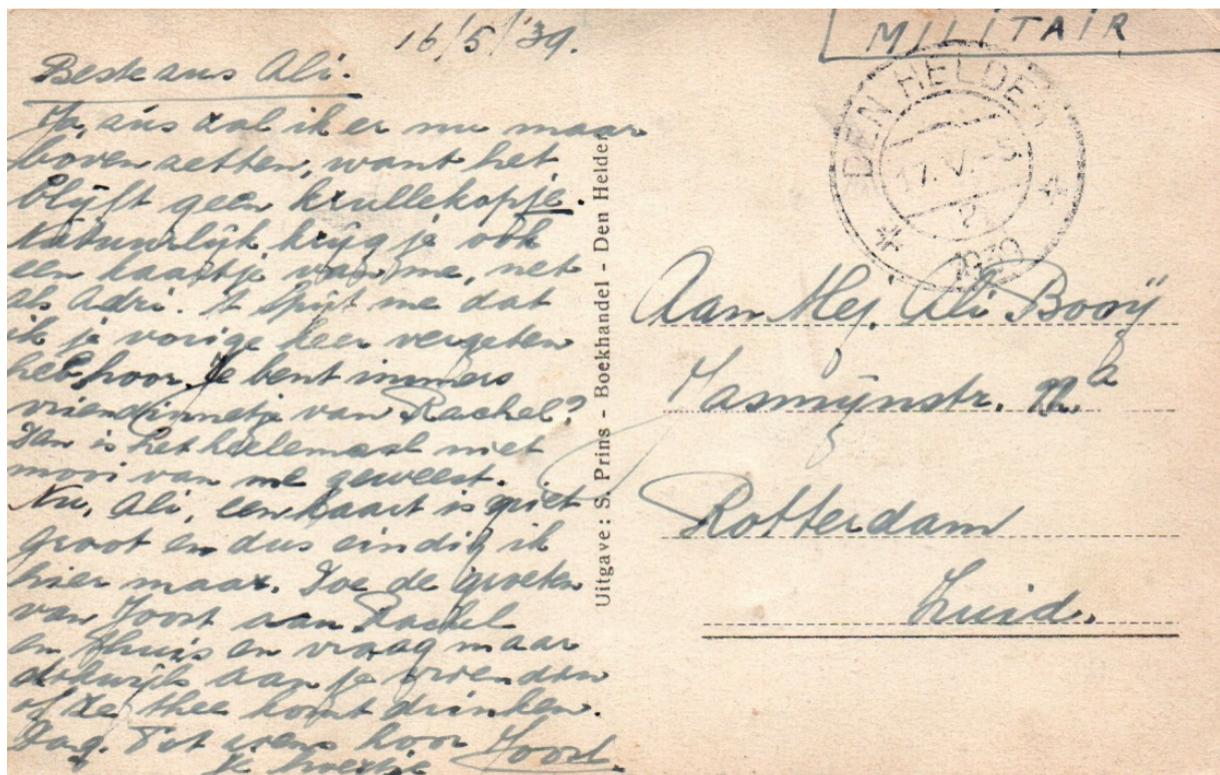 16/5/'39.
Beste zus Ali.
Ja, zus zal ik er nu maar
boven zetten, want het
blijft geen krullekopje.
Natuurlijk krijg je ook
een kaartje van me, net
als Adri. 't Spijt me dat
ik je vorige keer vergeten
heb hoor. Je bent immers
vriendinnetje van Rachel?
Dan is het heelemaal niet
mooi van me geweest.
Nu, Ali, een kaart is niet
groot en dus eindig ik
hier maar. Doe de groeten
van Joost aan Rachel
en thuis en vraag maar
dikwijls aan je vriendin
of ze thee komt drinken.
Dag. Tot ziens hoor Joost.
je broertje
Uitgave: S. Prins - Boekhandel - Den Helder
MILITAIR
DEN HELDER
17.V.
1939
Aan Mej. Ali Booij
Jasmijnstr. a
Rotterdam
Zuid.